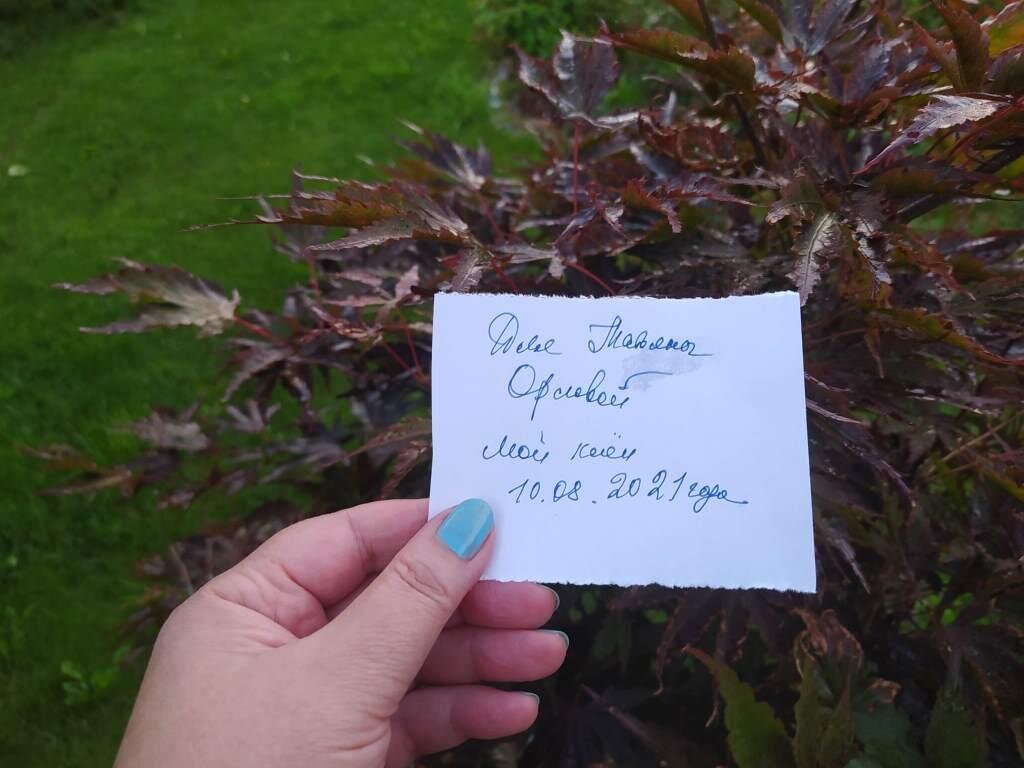 Для Татьяны
Орловой
Мой клён
10.08.2021 года